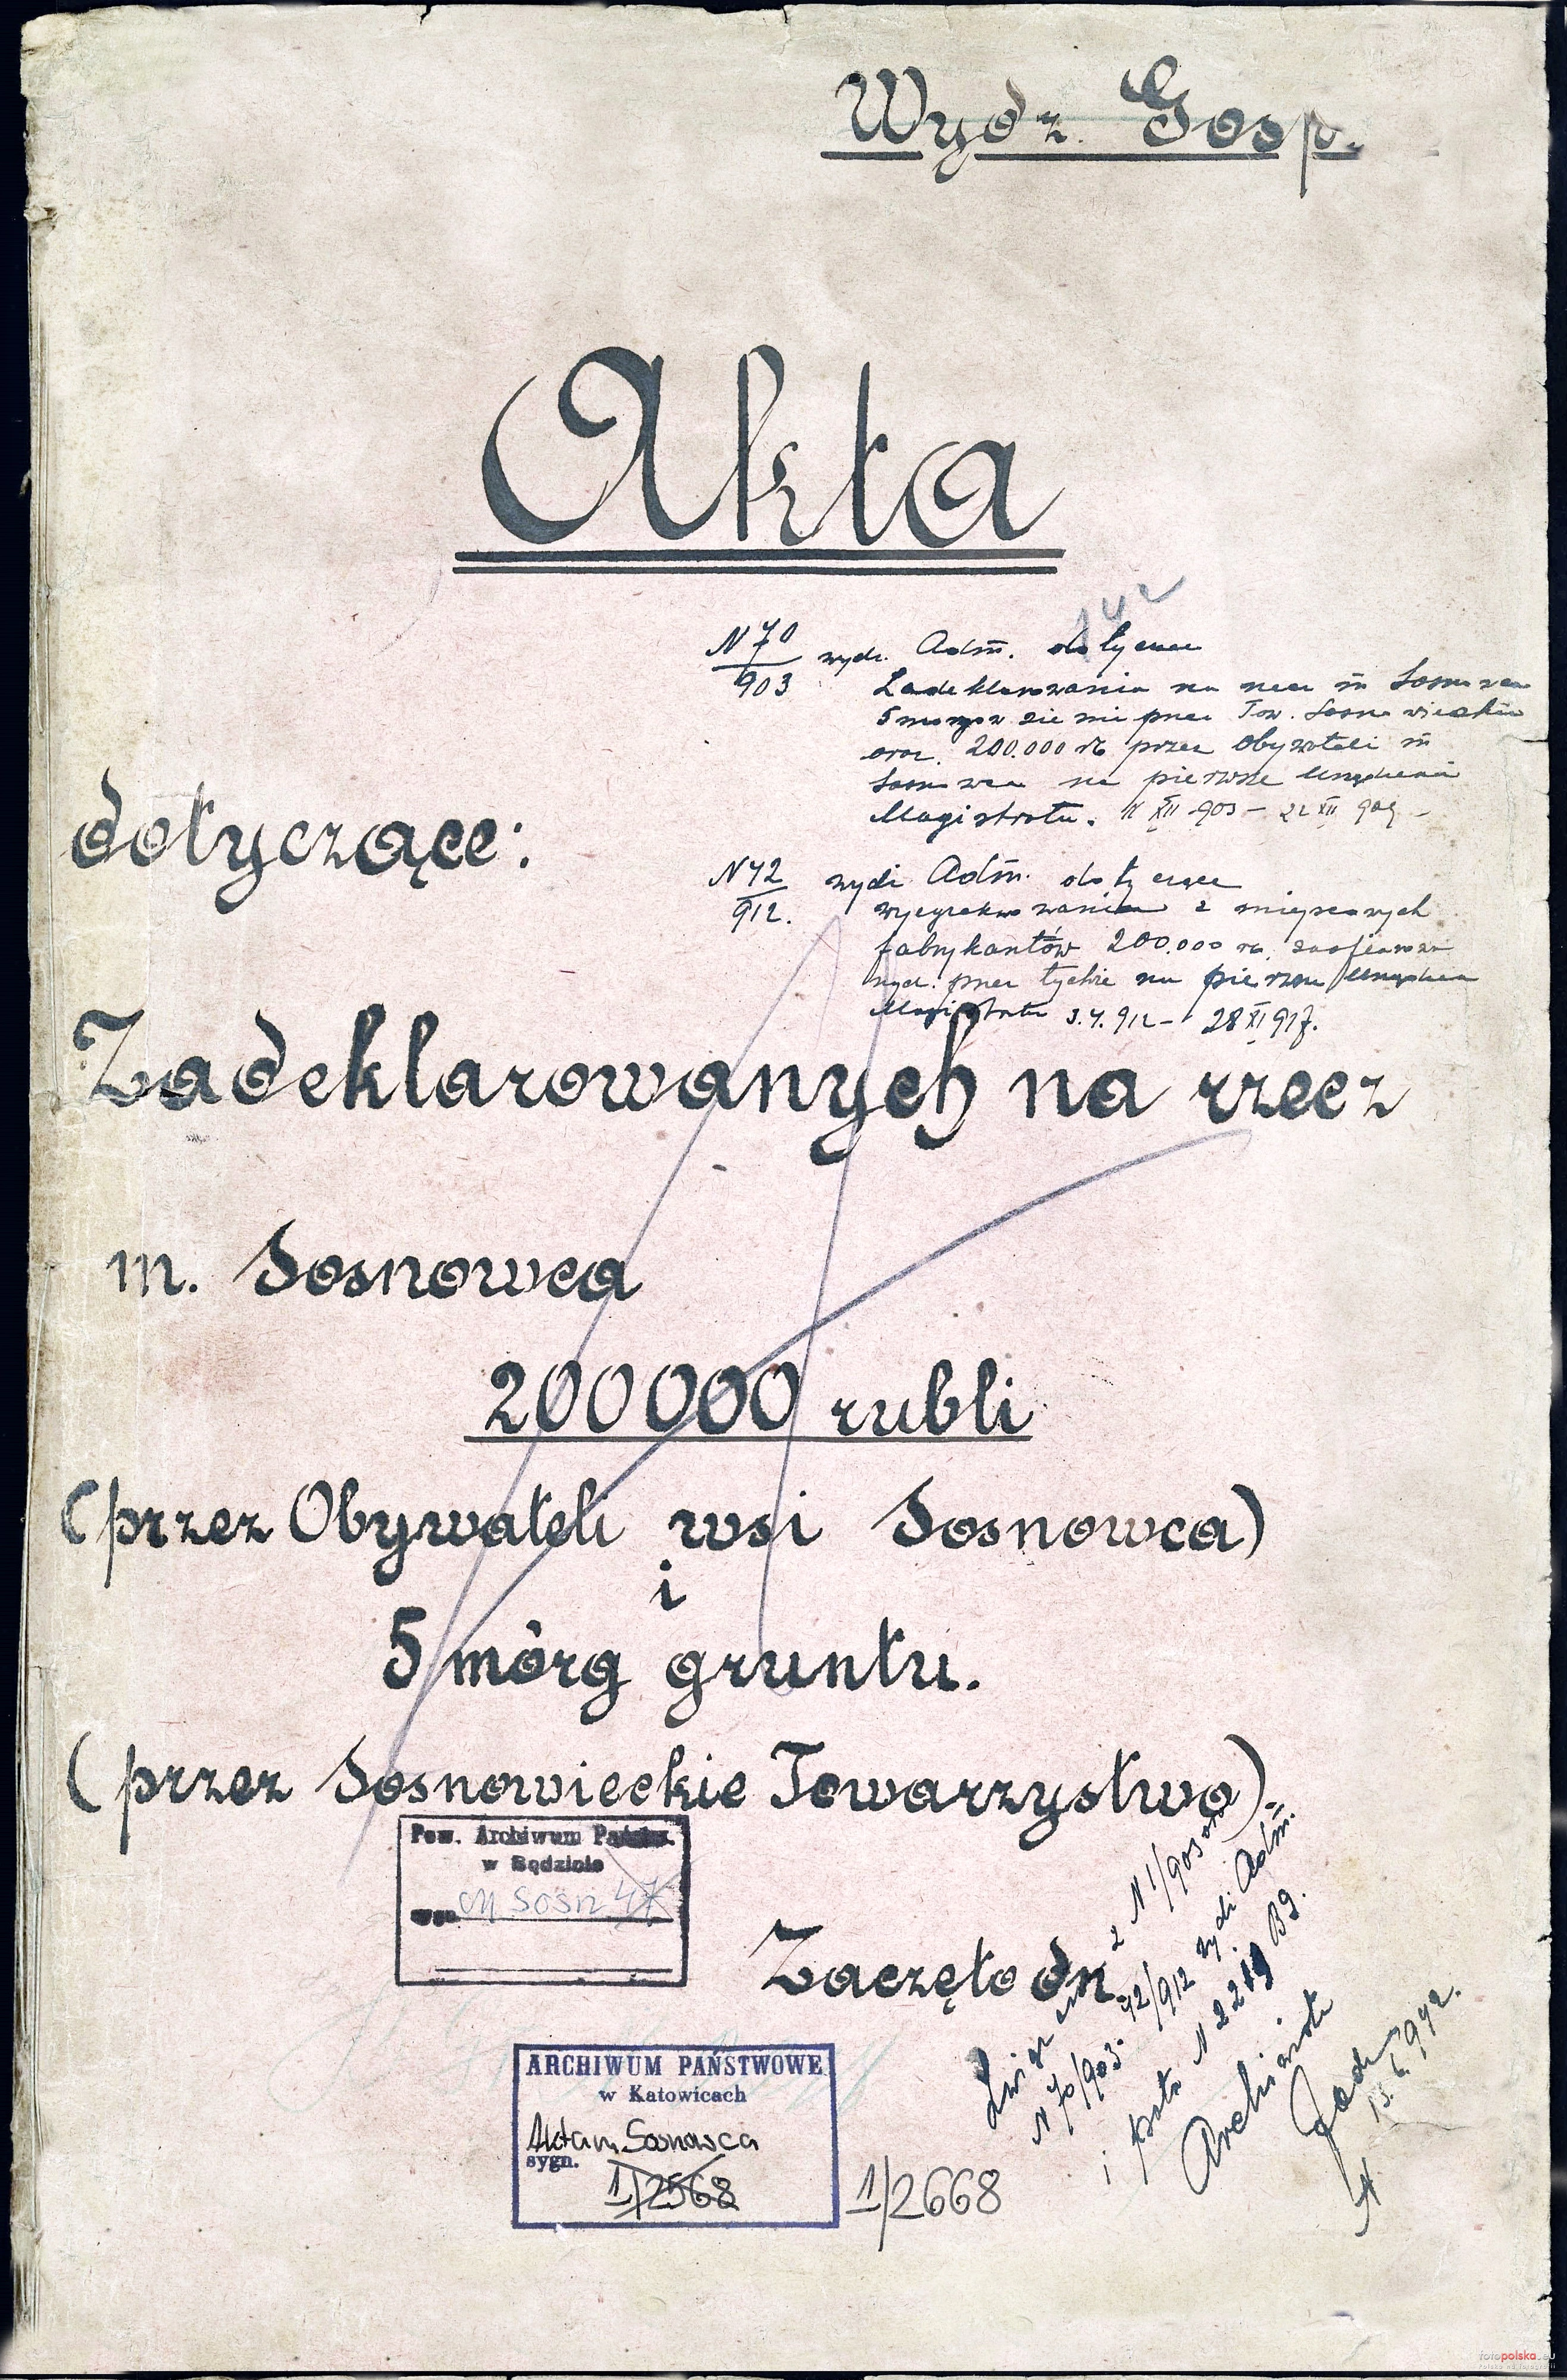 Wydz. Gosp.
Akta
142
N 70/903 wydz. Adm. dotyczące
Zadeklarowania na rzecz m Sosnowca
5 morgów ziemi przez Tow. Sosnowieckie
oraz 200.000 rb przez Obywateli m
Sosnowca na pierwsze urządzenie
Magistratu. XII 903 – 22 XII 909 –
dotyczące:
N 42/912. wydz Adm. dotyczące
wyegzekwowania z miejscowych
fabrykantów 200.000 rb. zaofiarowa
nych przez tychże na pierwsze urządzenie
Magistratu 3.4.912 – 28 XI 917.
Zadeklarowanych na rzecz
m. Sosnowca
200000 rubli
(przez Obywateli wsi Sosnowca)
i
5 mórg gruntu.
(przez Sosnowieckie Towarzystwo).
Pow. Archiwum Państw.
w Będzinie
M Sosn 47
Zaczęto dn.
z N 1/903
N 70/903. 42/912 wydz Adm.
i N 2219 B9.
Archiwista
13.6.1942.
ARCHIWUM PAŃSTWOWE
w Katowicach
Akta m Sosnowca
sygn.
1/2568
1/2668
fotopolska.eu